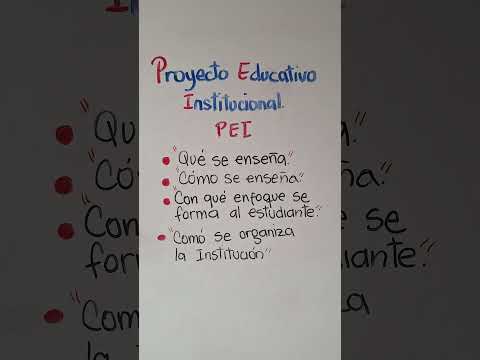 Proyecto Educativo
Institucional.
PEI
"Qué se enseña."
"Cómo se enseña."
"Con qué enfoque se
forma al estudiante."
"Comó se organiza
la Institución"